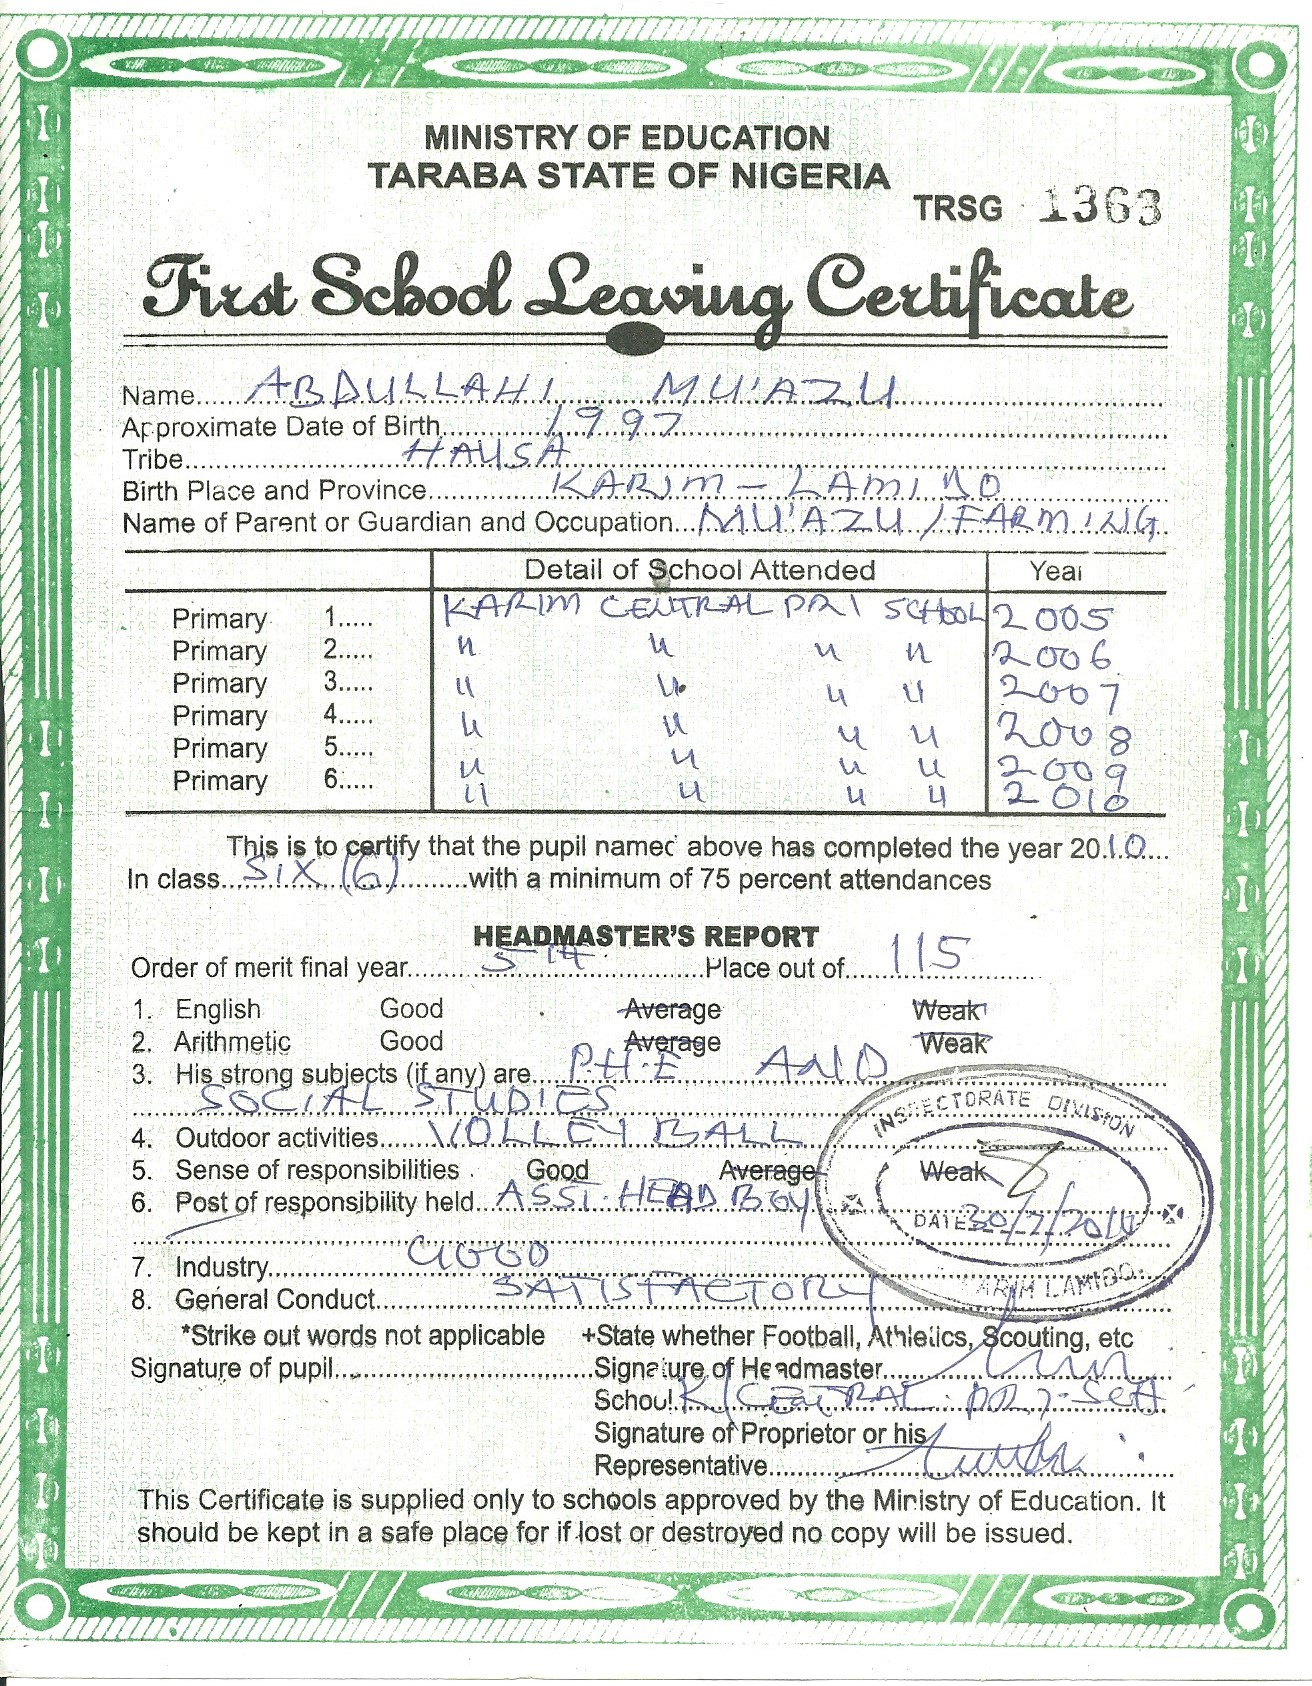 MINISTRY OF EDUCATION
TARABA STATE OF NIGERIA
TRSG 1363
First School Leaving Certificate
Name.....ABDULLAHI MU'AZU
Approximate Date of Birth.....1997
Tribe.....HAUSA
Birth Place and Province.....KARIM - LAMIDO
Name of Parent or Guardian and Occupation...MU'AZU / FARMING
Detail of School Attended Year
Primary 1..... KARIM CENTRAL PRI SCHOOL 2005
Primary 2..... " " " " 2006
Primary 3..... " " " " 2007
Primary 4..... " " " " 2008
Primary 5..... " " " " 2009
Primary 6..... " " " " 2010
This is to certify that the pupil named above has completed the year 2010....
In class.....SIX (6).....with a minimum of 75 percent attendances
HEADMASTER'S REPORT
Order of merit final year.....5TH.....Place out of.....115
1. English Good Average Weak
2. Arithmetic Good Average Weak
3. His strong subjects (if any) are....P.H.E AND
SOCIAL STUDIES
4. Outdoor activities.....VOLLEY BALL
5. Sense of responsibilities Good Average Weak
6. Post of responsibility held...ASST. HEAD BOY
7. Industry.....GOOD
8. General Conduct.....SATISFACTORY
INSPECTORATE DIVISION
DATE 30/7/2010
KARIM LAMIDO.
*Strike out words not applicable +State whether Football, Athletics, Scouting, etc
Signature of pupil.....Signature of Headmaster.....
School.K/CENTRAL. PRI. SCH
Signature of Proprietor or his
Representative.....
This Certificate is supplied only to schools approved by the Ministry of Education. It
should be kept in a safe place for if lost or destroyed no copy will be issued.